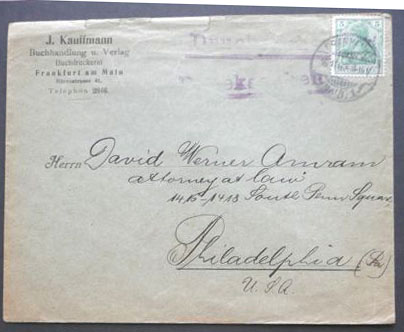 J. Kauffmann
Buchhandlung u. Verlag
Buchdruckerei
Frankfurt am Main
Telephon 2846.
Herrn David Werner Amram
attorney at law
1415-1418 South Penn Square
Philadelphia (Pa)
U.S.A.